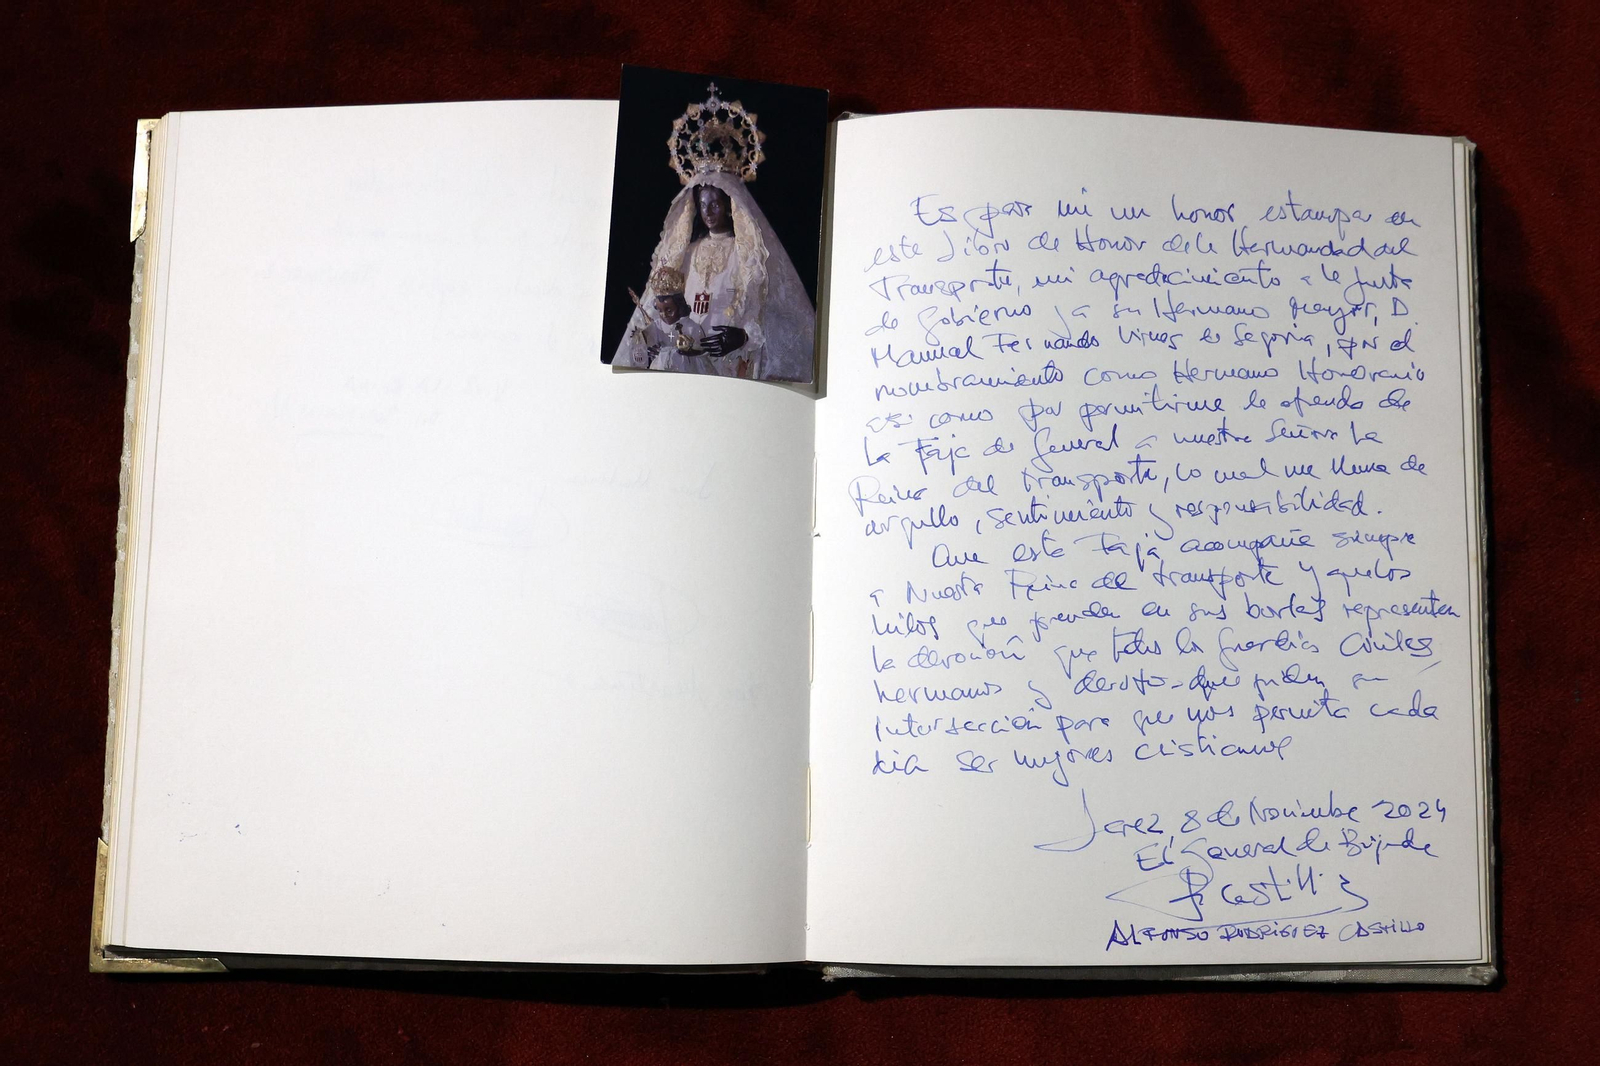 Es para mi un honor estampar en
este Libro de Honor de la Hermandad del
Transporte, mi agradecimiento a la Junta
de Gobierno y a su Hermano Mayor, D.
Manuel Fernando de Segovia, por el
nombramiento como Hermano Honorario
asi como por permitirme la ofrenda de
la Faja de General a nuestra Señora La
Reina del Transporte, lo cual me llena de
orgullo, sentimiento y responsabilidad.
Que esta Faja acompañe siempre
a Nuestra Reina del transporte y aquellos
hilos que prenden en sus borlas representen
la devoción que todos los Guardias Civiles,
hermanos y devotos que piden su
intersección para que nos permita cada
dia ser mejores cristianos
Jerez, 8 de Noviembre 2024
El General de Brigada
R Castillo
ALFONSO RODRIGUEZ CASTILLO